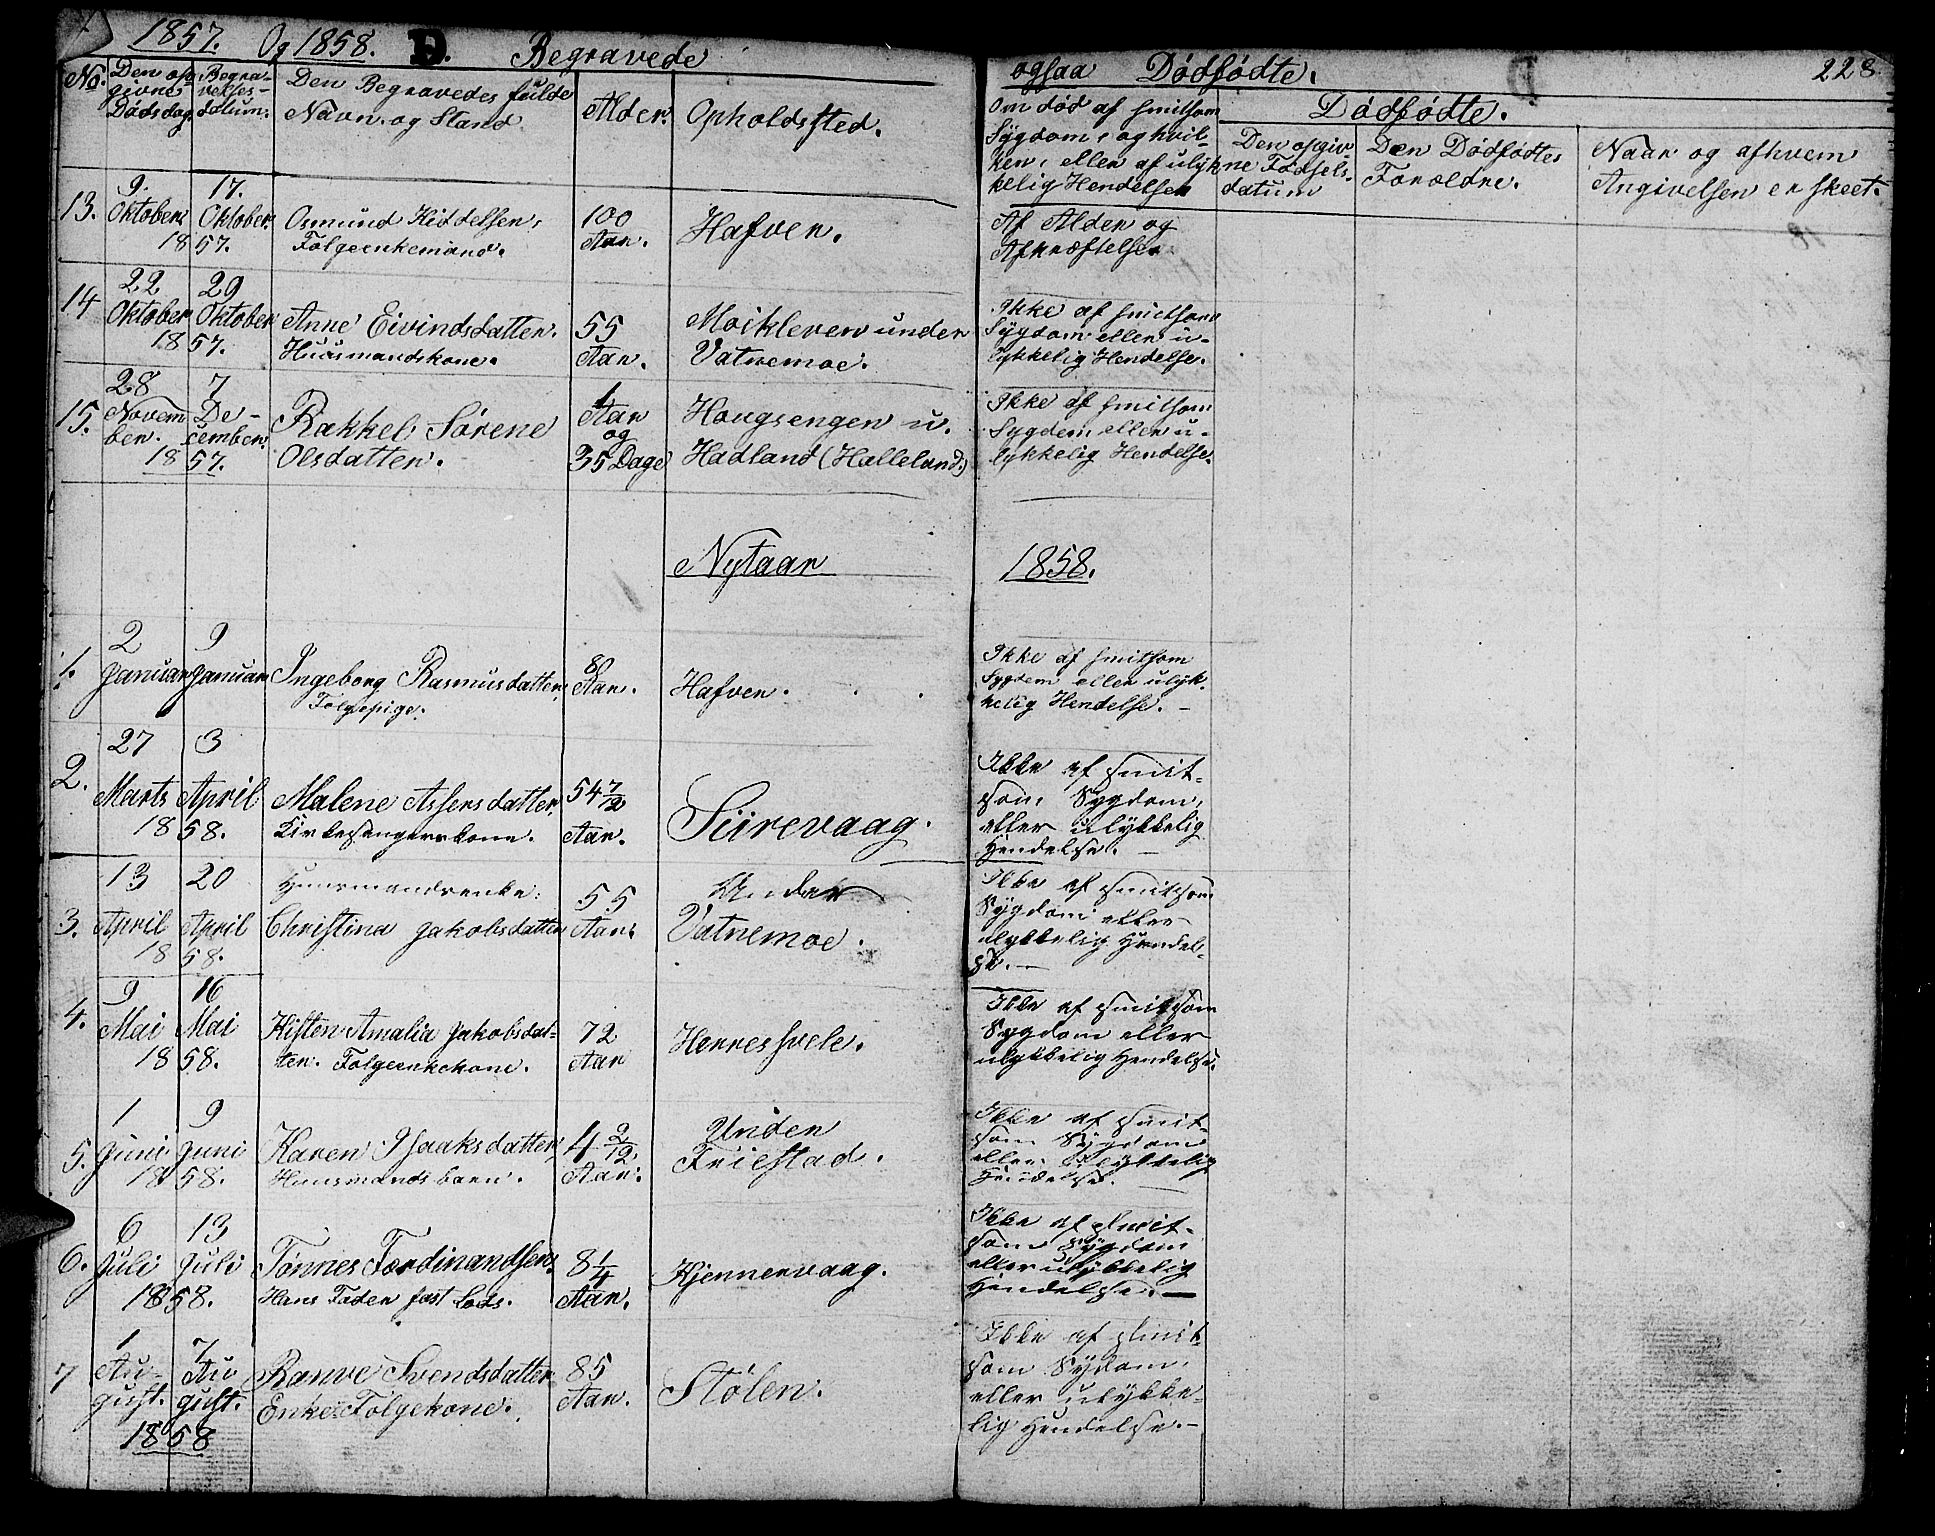 1857. Og 1858. D. Begravede ogsaa Dødfødte. 228
No. Den opgivne Dødsdag. Begravelses-datum. Den Begravedes fulde Navn og Stand Alder. Opholdssted. Om død af smitsom Sygdom, og hvilken, eller af ulykkelig Hendelser
Dødfødte.
Den opgivne Fødsels-datum Den Dødfødtes Forældre. Naar og afhvem Angivelsen er skeet.
13. 9. Oktober 1857. 17. Oktober Osmund Hiddelsen, Følgeenkemand. 100 Aar. Hafver. Af Alder og Afkræftelse
14 22 Oktober 1857. 29 Oktober Anne Eivindsdatter. Huusmandskone. 55 Aar. Moikleven under Vatnemoe. Ikke af smitsom Sygdom eller ulykkelig Hendelse.
15. 28 November. 1857. 7 December. Rakkel Sørene Olsdatter. 1 Aar og 35 Dage Hougsengen u. Hadland (Halleland.) Ikke af smitsom Sygdom eller ulykkelig Hendelse.
Nytaar 1858.
1. 2 Januar 9 Januar Ingeborg Rasmusdatter, Følgepige. 80 Aar. Hafver. Ikke af smitsom Sygdom eller ulykkelig Hendelse. —
2. 27 Marts 1858. 3 April Malene Assersdatter, Kirkesangerskone. 54 7/12 Aar. Siirevaag. Ikke af smitsom Sygdom, eller ulykkelig Hendelse. —
3. 13 April 1858. 20 April Huusmandsenke: Christina Jakobsdatter 55 Aar. Under Vatnemoe. Ikke af smitsom Sygdom eller ulykkelig Hendelse. —
4. 9 Mai 1858. 16 Mai Kisten Amalia Jakobsdatter. Følgeenkekone. 72 Aar Hennesfvele. Ikke af smitsom Sygdom eller ulykkelig Hendelse.
5. 1 Juni 1858. 9 Juni Karen Isaaksdatter, Huusmands barn. 4 2/12 Aar. Under Friestad. Ikke af smitsom Sygdom eller ulykkelig Hendelse. —
6. 6 Juli 1858. 13 Juli Tønnes Ferdinandsen, Hans Fader fast Lods. 8 1/4 Aar. Kjennervaag. Ikke af smitsom Sygdom eller ulykkelig Hendelse. —
7 1 August. 1858 7 August. Ranve Svendsdatter Enke: Følgekone. 85 Aar. Stølen. Ikke af smitsom Sydom, eller ulykkelig Hendelse. —